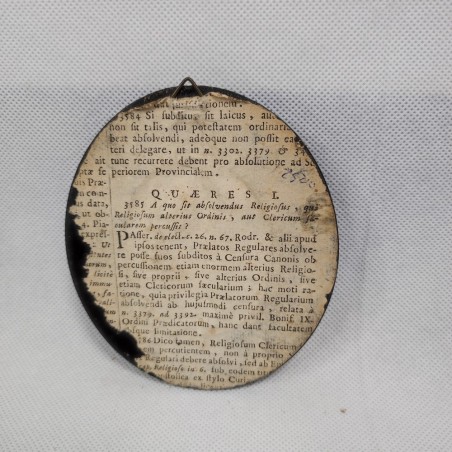 3584 Si subditus sit laicus, aut
non sit talis, qui potestatem ordinari
beat absolvendi, adeoque non possit ea
teri delegare, ut in n. 3302. 3379. &
tunc recurrere debent pro absolutione ad S
periorem Provincialem.
QUÆRES I.
3585 A quo sit absolvendus Religiosus, qui
Religiosum alterius Ordinis, aut Clericum sæ
cularem percussit?
PAsser. de elect. c. 26. n. 67. Rodr. & alii apud
ipsos tenent, Prælatos Regulares absolve
re posse suos subditos à Censura Canonis ob
percussionem etiam enormem alterius Religio
si, sive proprii, sive alterius Ordinis, sive
etiam Clericorum sæcularium; hac moti ra
tione, quia privilegia Prælatorum Regularium
absolvendi ab hujusmodi censura, relata à
n. 3379. ad 3392. maximè privil. Bonif. IX.
Ordini Prædicatorum, hanc dant facultatem
absque limitatione.
586 Dico tamen, Religiosum Clericum
percutientem, non à proprio
Regulari debere absolvi, sed ab
Religioso in 6. sub. eodem tit
ex stylo Curi